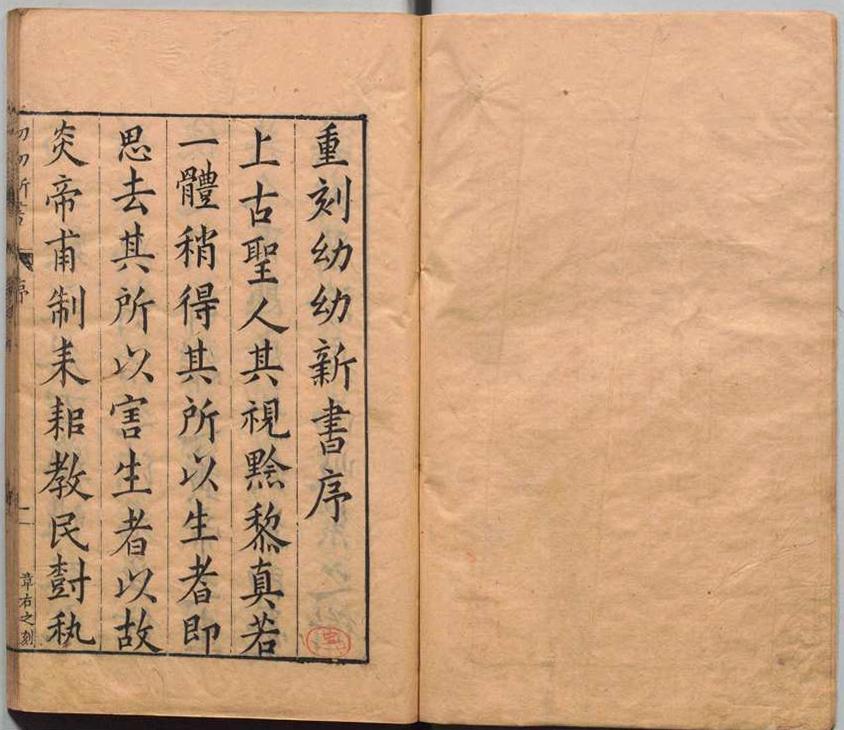 重刻幼幼新書序
上古聖人其視黔黎真若
一體稍得其所以生者即
思去其所以害生者以故
炎帝甫制耒耜教民尌秇
序
章右之刻